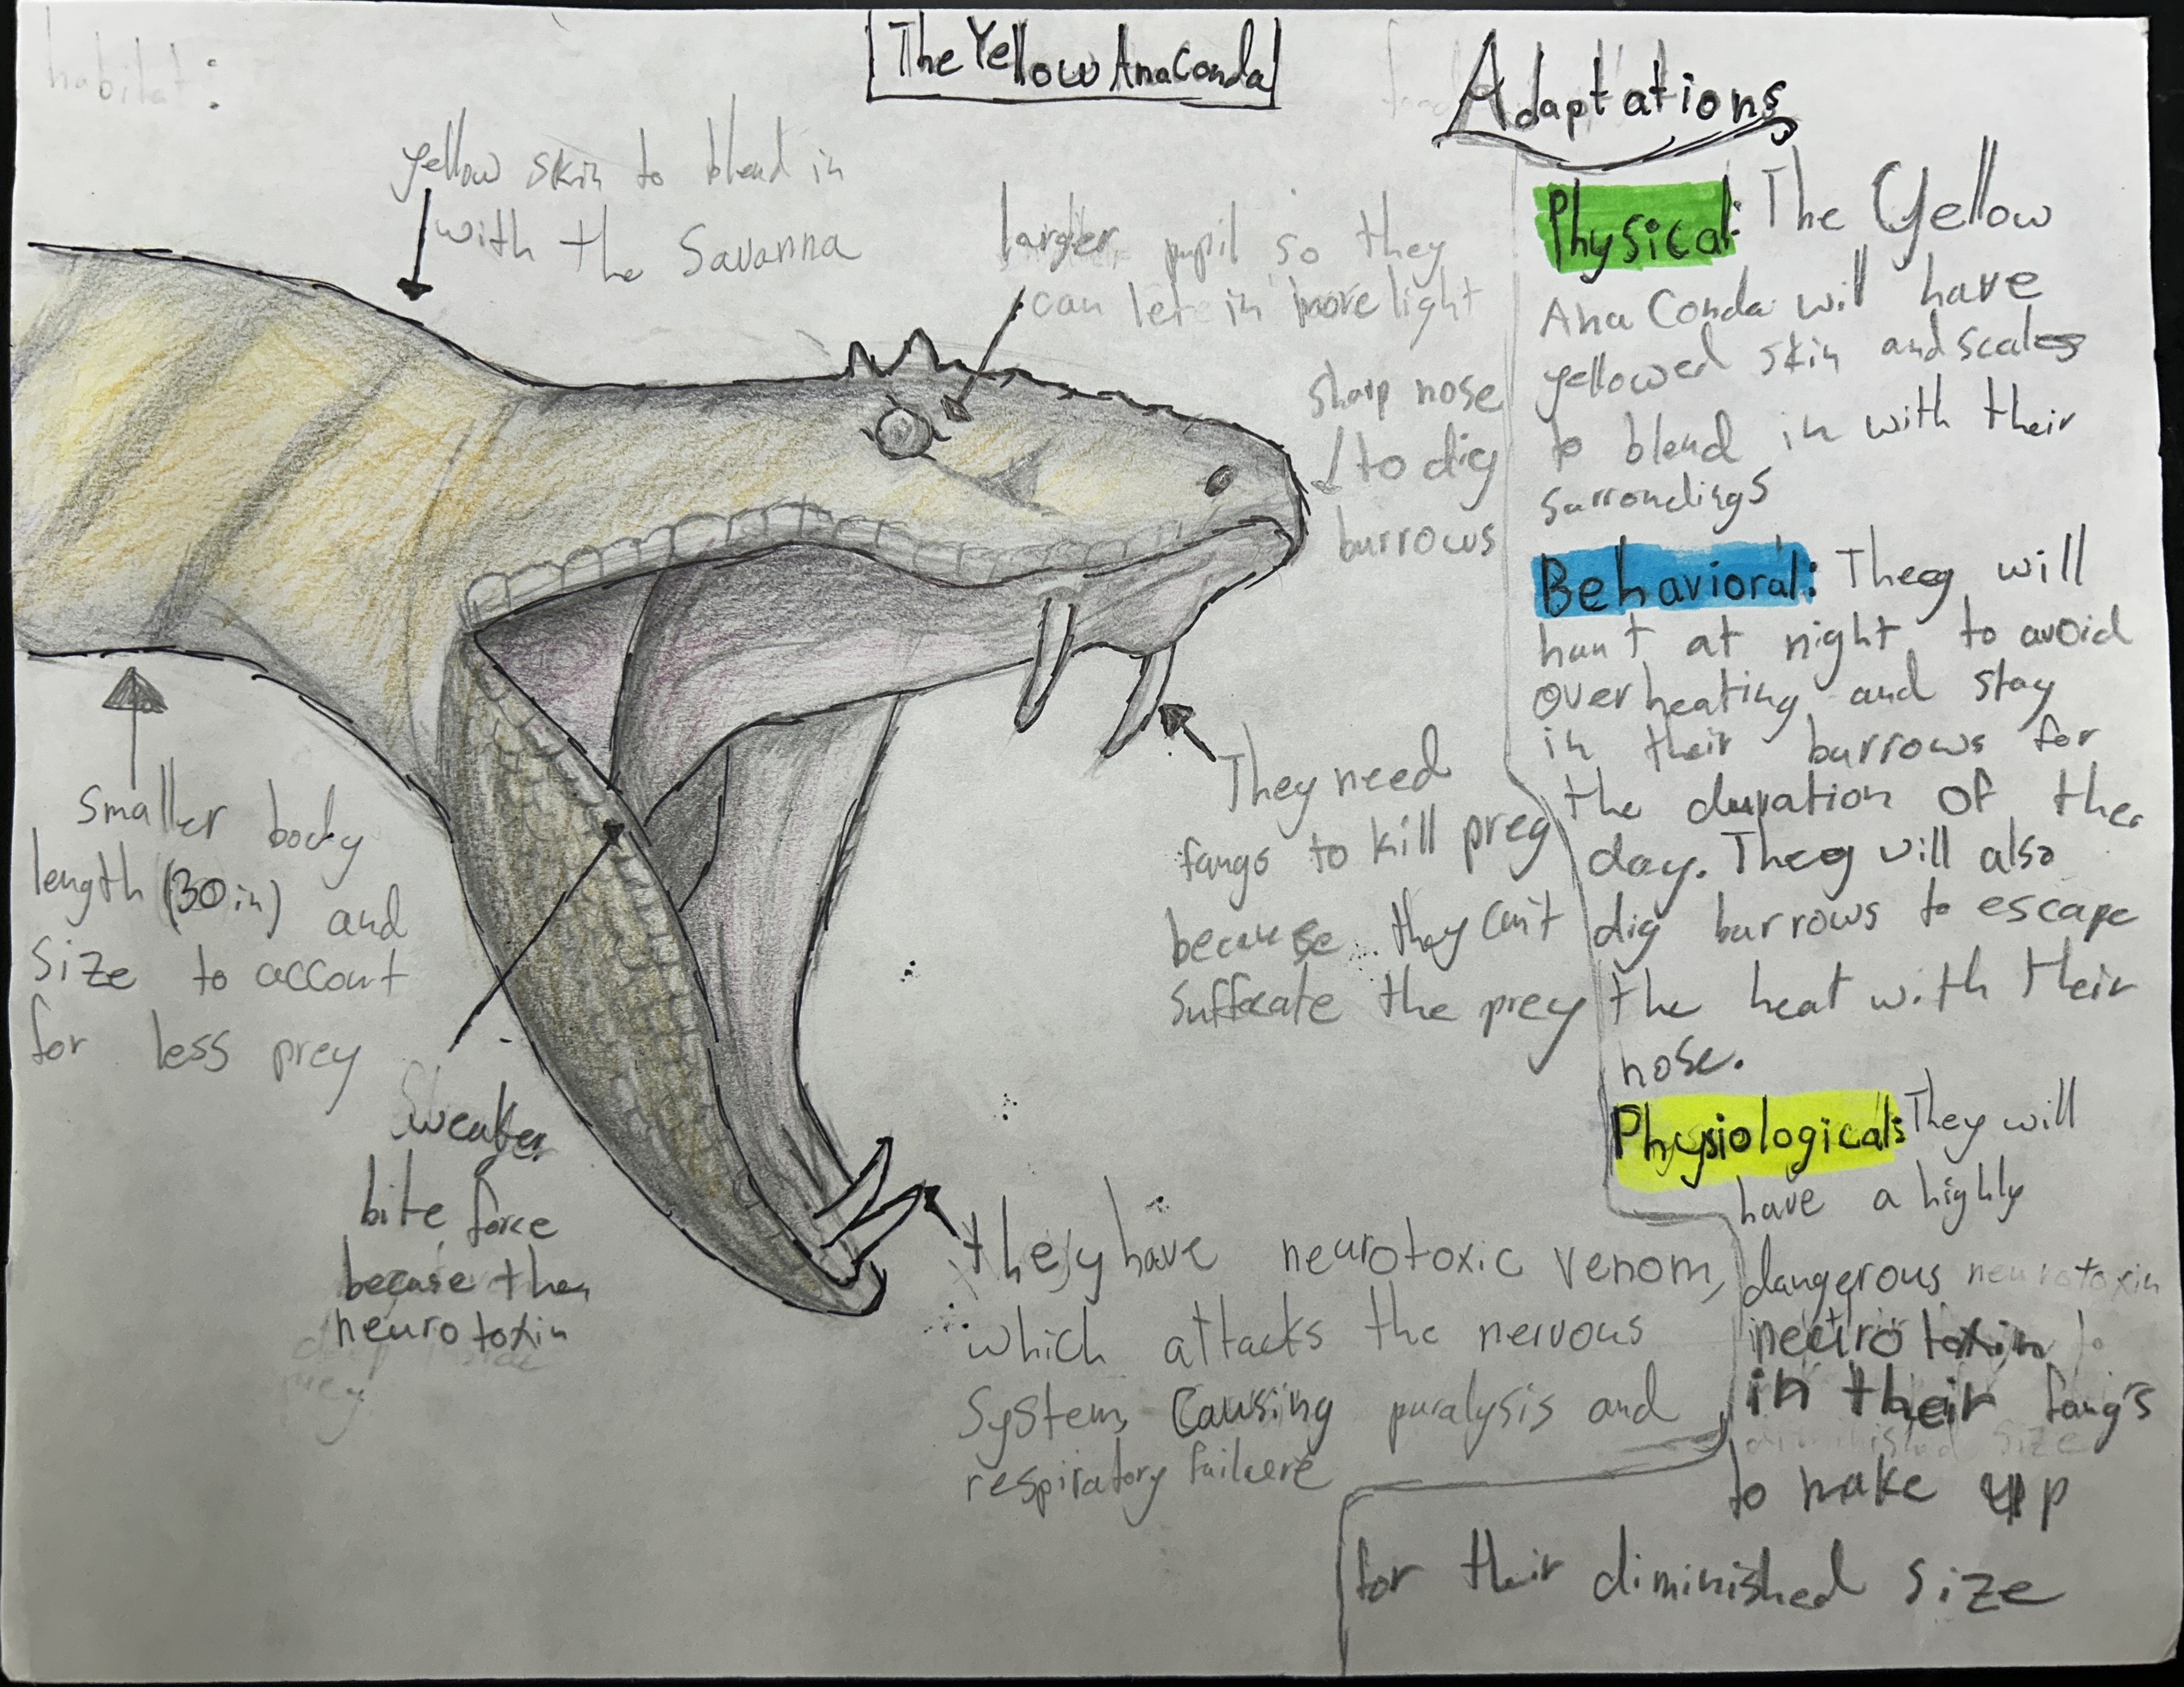 habitat:
The Yellow AnaConda
Adaptations
yellow skin to blend in
with the Savanna
larger pupil so they
can let in more light
sharp nose
to dig
burrows
smaller body
length (30in) and
size to accout
for less prey
weaker
bite force
because
neurotoxin
They need
fangs to kill prey
because they can't
suffocate the prey
they have neurotoxic venom,
which attacks the nervous
system, causing paralysis and
respiratory failuere
Physical: The Yellow
AnaConda will have
yellowed skin and scales
to blend in with their
surrondings
Behavioral: They will
hunt at night to avoid
overheating and stay
in their burrows for
the duration of the
day. They will also
dig burrows to escape
the heat with their
nose.
Physiological: They will
have a highly
dangerous neurotoxin
neurotoxin
in their fang's
to make up
for their diminished size